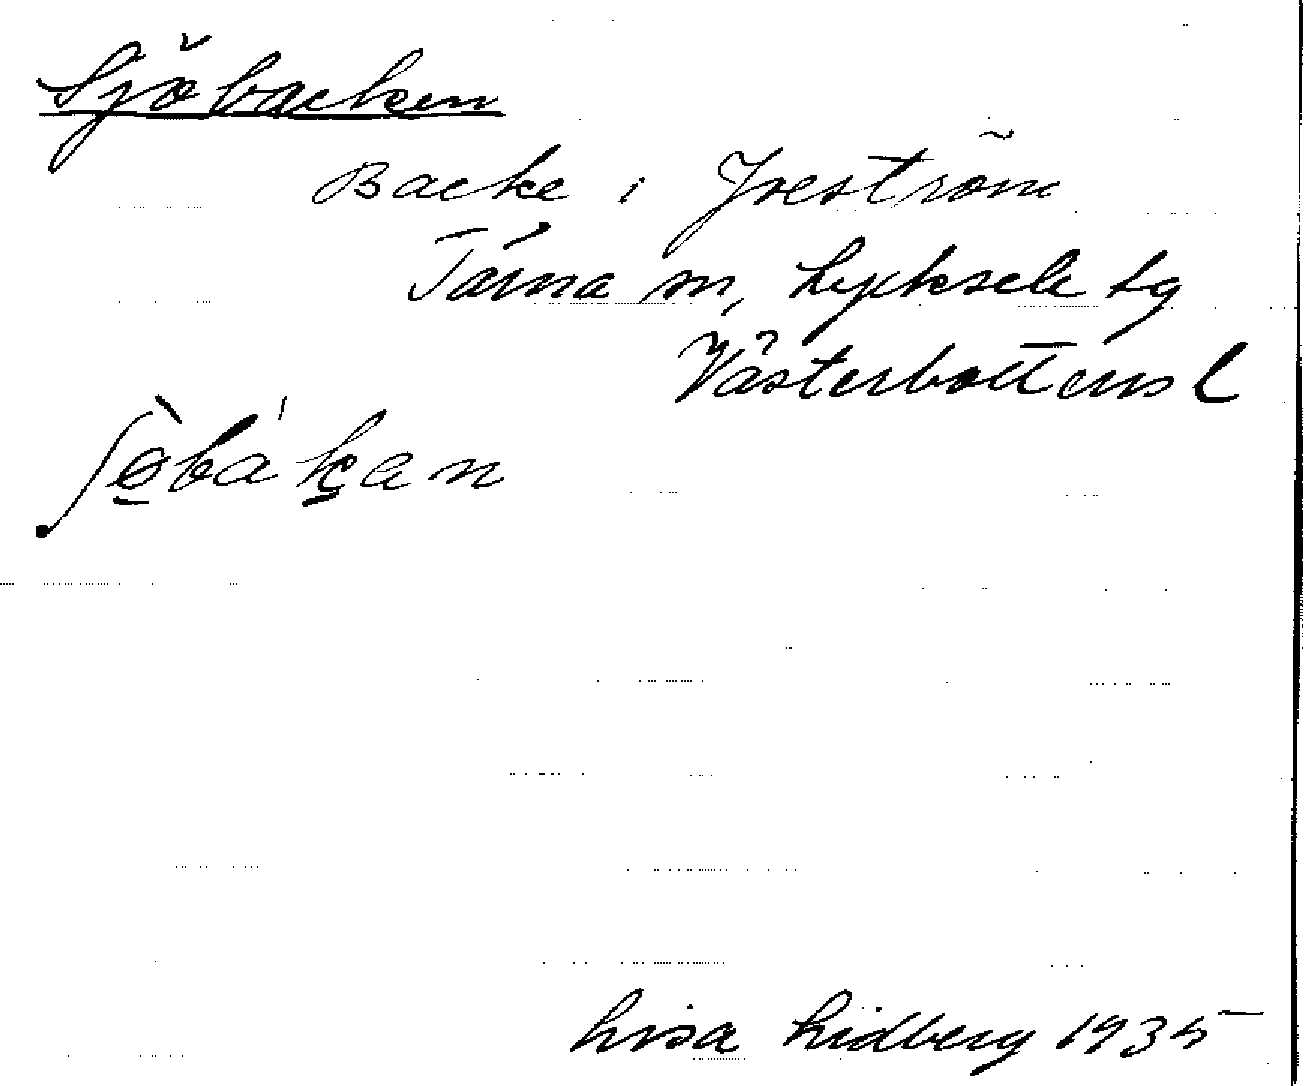 Sjöbacken
Backe i Joeström
Tärna sn, Lycksele tg
Västerbottens l
Lisa Lidberg 1935